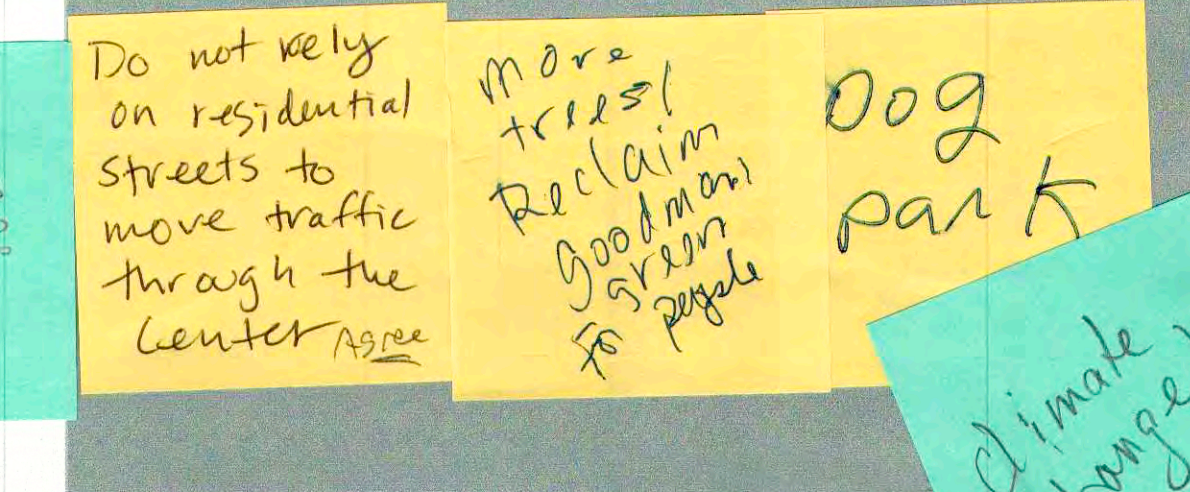 Do not rely
on residential
streets to
move traffic
through the
Center Agree
more
trees!
Reclaim
Goodman
green
for people
Dog
park
climate